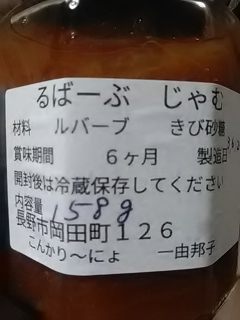 るばーぶ じゃむ
材料 ルバーブ きび砂糖
賞味期間 6ヶ月 製造日
開封後は冷蔵保存してください
内容量 158g
長野市岡田町126
こんかり〜にょ 一由邦子